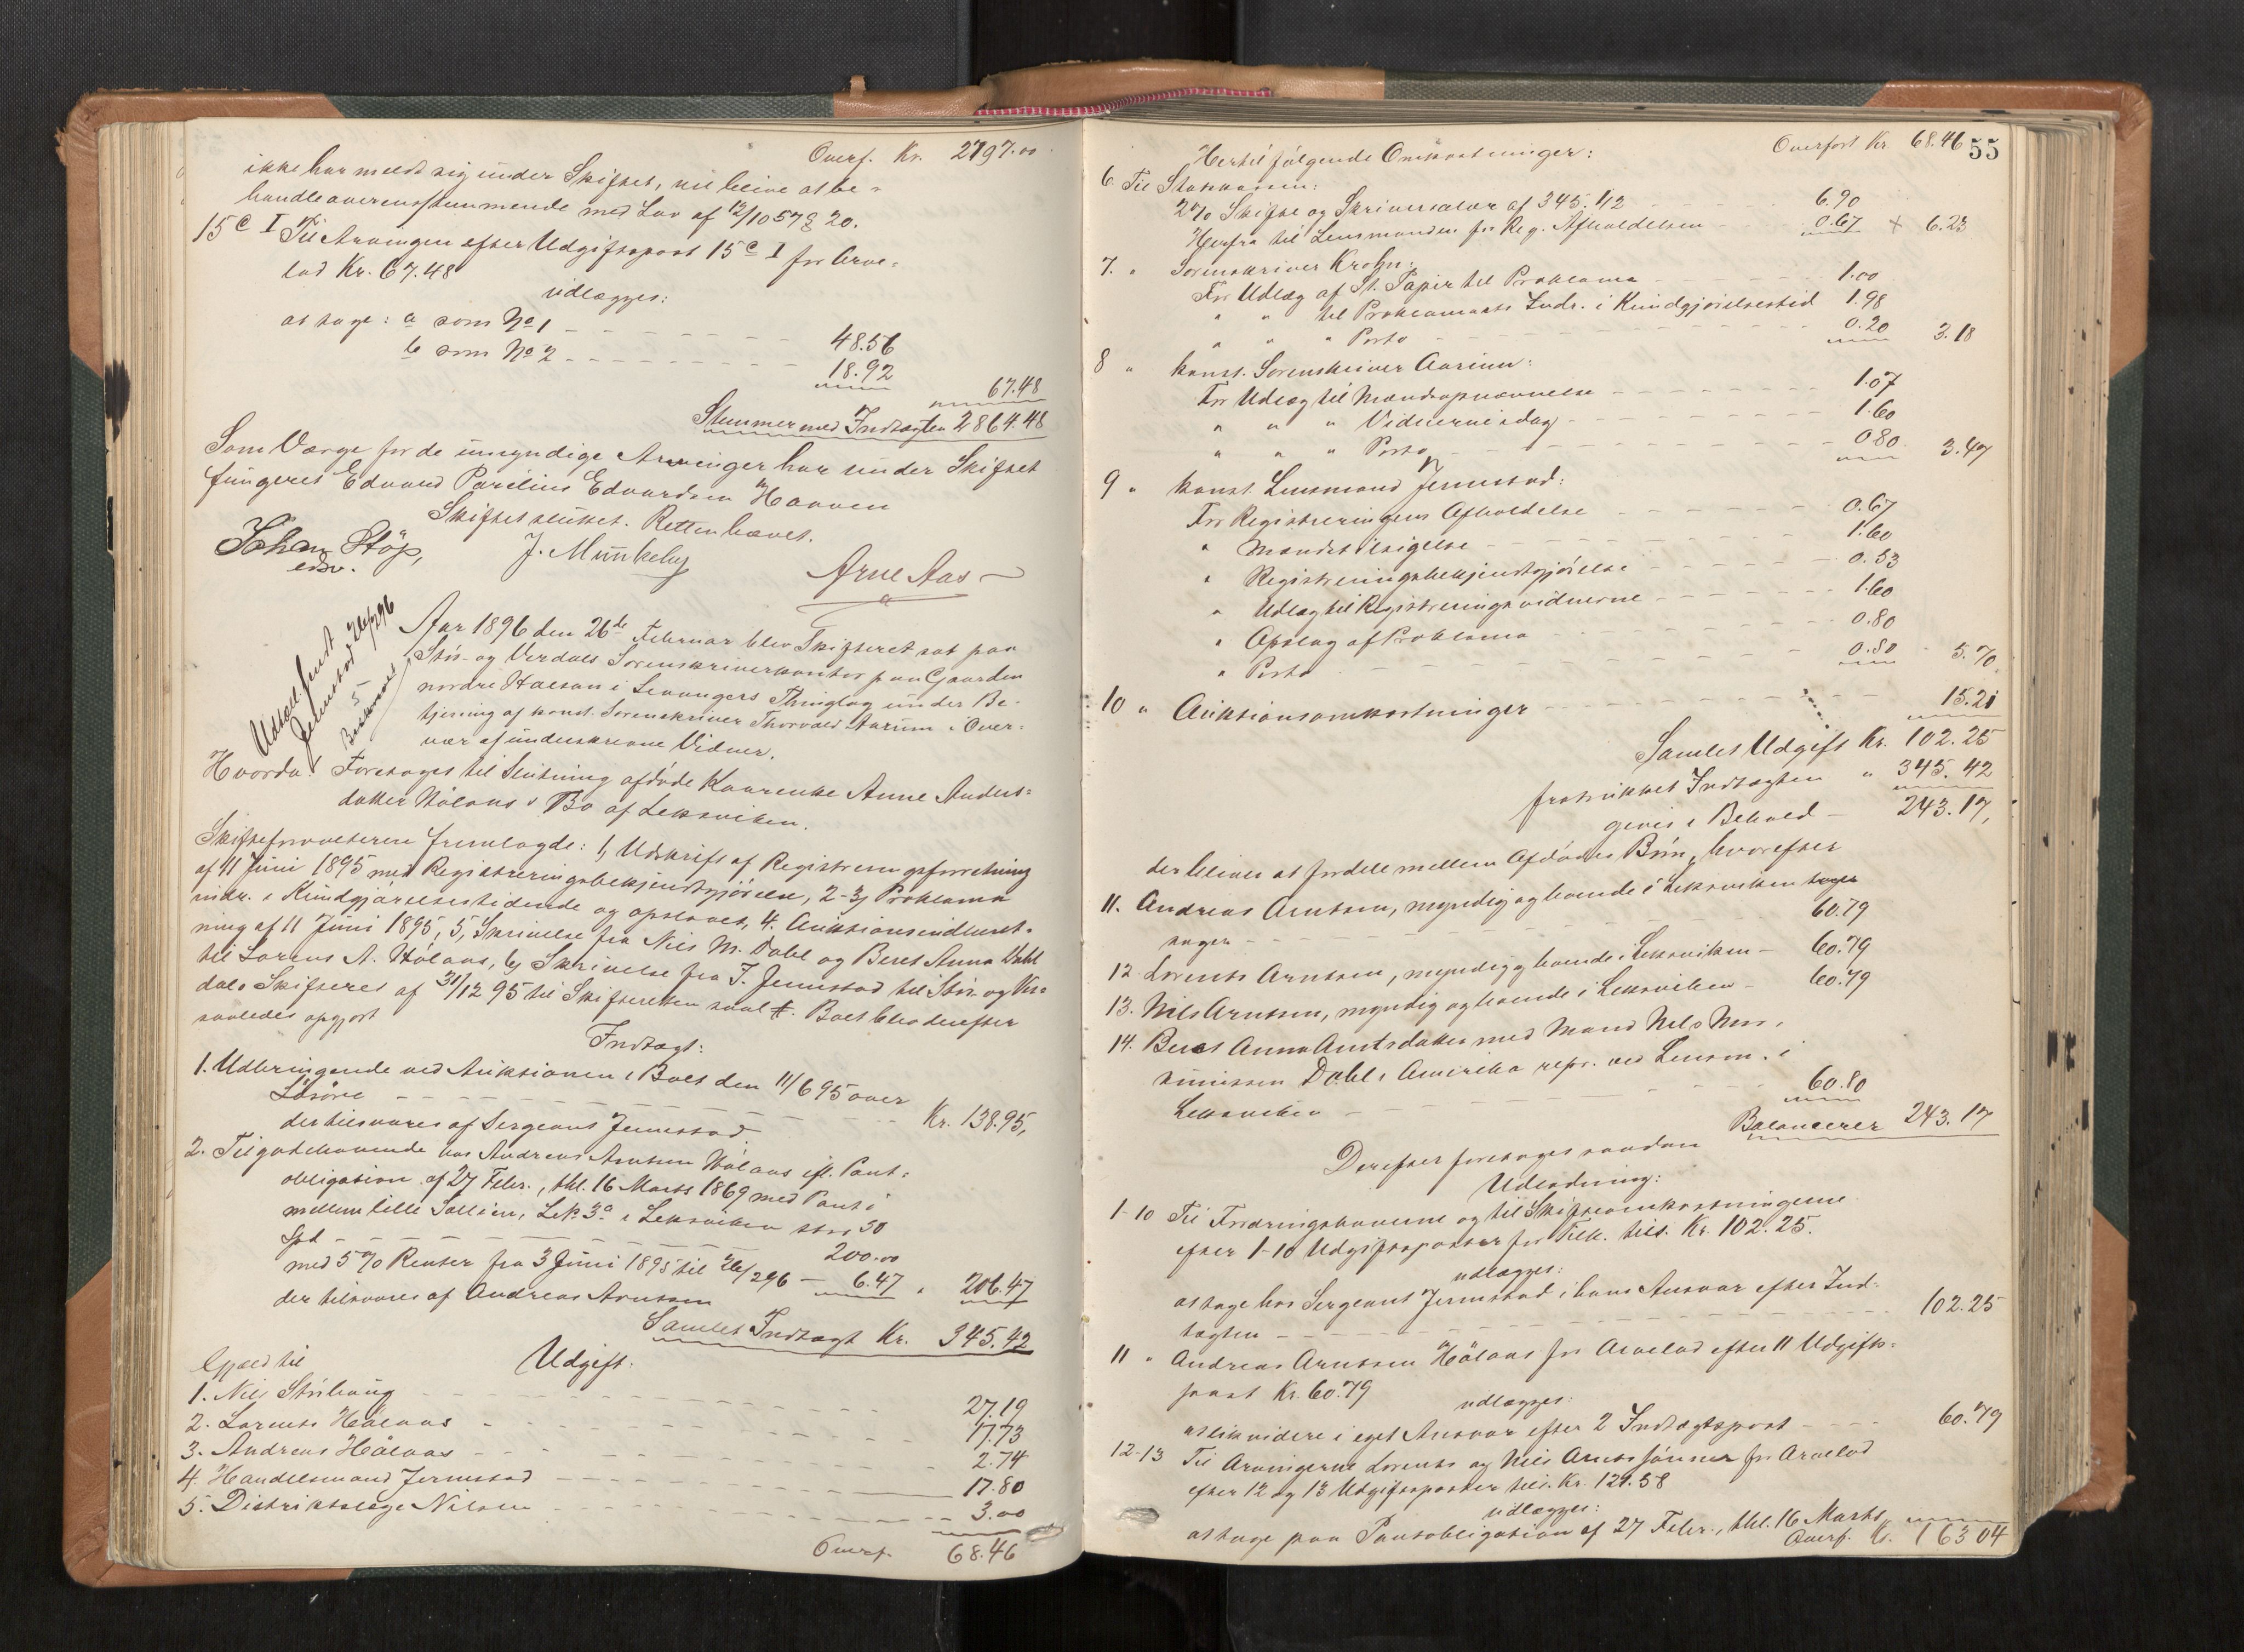 Overf. Kr. 2797.00
ikke har meldt sig under Skiftet, vil blive at be-
handle overensstemmende med Lov af 12/10 57 § 20.
15 c I Til Arvingen efter Udgiftspost 15 c I for Arve-
lod Kr. 67.48
udlægges:
at tage: a som No 1 48.56
b som No 2 18.92 67.48
Stemmer med Indtægten 2864.48
Som Værge for de umyndige Arvinger har under Skiftet
fungeret Edvard Parelius Edvardsen Hammen
Skiftet sluttet. Retten hævet.
Johan Støp, J. Munkeby Arne Aas
edsv.
Udskr. sendt
Jermstad 26/2 96
5
Aar 1896 den 26de Februar blev Skifteret sat paa
Stør- og Verdals Sorenskriverkontor paa Gaarden
nordre Halsan i Levangers Thinglag under Be-
tjening af konst. Sorenskriver Thorvald Aarum i Over-
vær af underskrevne Vidner.
Hvorda: Foretoges til Slutning afdøde Kaarenke Anne Anders-
datter Hølaas's Bo af Leksviken.
Skifteforvalteren fremlagde: 1, Udskrift af Registreringsforretning
af 11 Juni 1895 med Registreringsbekjendtgjørelse, 2-3, Proklama
indr. i Kundgjørelsestidende og opslaaet, 4. Auktionsindberet-
ning af 11 Juni 1895, 5, Skrivelse fra Nils M. Dahl og Beret Anna Dahl
til Lorens A. Hølaas, 6, Skrivelse fra J. Jermstad til Stør- og Ver-
dals Skifteret af 31/12 95 til Skifteretten Boet blev derefter
saaledes opgjort
Indtægt:
1. Udbringende ved Auktionen i Boet den 11/6 95 over
Løsøre Kr. 138.95,
der tilsvares af Sergeant Jermstad
2. Tilgodehavende hos Andreas Arntsen Hølaas ifl. Pant-
obligation af 27 Febr., thl. 16 Marts 1869 med Pant i
mellem lille Sollien, L.No 3a i Leksviken stor 50
Spd 200.00
med 5% Renter fra 3 Juni 1895 til 26/2 96 – 6.47 " 206.47
der tilsvares af Andreas Arntsen
Samlet Indtægt Kr. 345.42
Udgift:
Gjæld til
1. Nils Størhaug 27.19
2. Lorents Hølaas 17.73
3. Andreas Hølaas 2.74
4. Handelsmand Jermstad 17.80
5. Distriktslæge Nilsen 3.00
Overf. 68.46
Overført Kr. 68.46 55
Hertil følgende Omkostninger:
6. Til Statskassen:
2% Skifte og Skriversalær af 345.42 6.90
Herfra til Lensmanden for Reg. Afholdelsen 0.67 + 6.23
7. " Sorenskriver Krohn:
For Udlæg af St. Papir til Proklama 1.00
" " til Proklamaets Indr. i Kundgjørelsestid 1.98
" " " Porto 0.20 3.18
8 " konst. Sorenskriver Aarum:
For Udlæg til Mændsopnævnelse 1.07
" " " Vidnerne idag 1.60
" " " Porto 0.80 3.47
9 " konst. Lensmand Jermstad:
For Registreringens Afholdelse 0.67
" Mændstilsigelse 1.60
" Registreringsbekjendtgjørelse 0.53
" Udlæg til Registreringsvidnerne 1.60
" Opslag af Proklama 0.80
" Porto 0.80 5.70
10 " Auktionsomkostninger 15.21
Samlet Udgift Kr. 102.25
fratrukket Indtægten " 345.42
gives i Behold – 243.17,
der bliver at fordele mellem Afdødes Børn, hvorefter
11. Andreas Arntsen, myndig og boende i Leksviken tager
tager 60.79
12. Lorents Arntsen, myndig og boende i Leksviken – 60.79
13. Nils Arntsen, myndig og boende i Leksviken – 60.79
14. Beret Anna Arntsdatter med Mand Nils
Dahl, i Amerika repr. ved Lensm. i
Leksviken 60.80
Balancerer 243.17
Derefter foretoges saadan
Udlodning:
1-10 Til Fordringshaverne og til Skifteomkostningerne
efter 1-10 Udgiftsposter for tils. Kr. 102.25.
udlægges:
at tage hos Sergeant Jermstad i hans Ansvar efter Ind-
tægten 102.25
11 " Andreas Arntsen Hølaas for Arvelod efter 11 Udgifts-
post Kr. 60.79
udlægges:
at likvidere i eget Ansvar efter 2 Indtægtspost 60.79
12-13 Til Arvingerne Lorents og Nils Arntssønner for Arvelod
efter 12 og 13 Udgiftsposter tils. Kr. 121.58
udlægges:
at tage paa Pantobligation af 27 Febr., thl. 16 Marts
Overf. Kr. 163 04